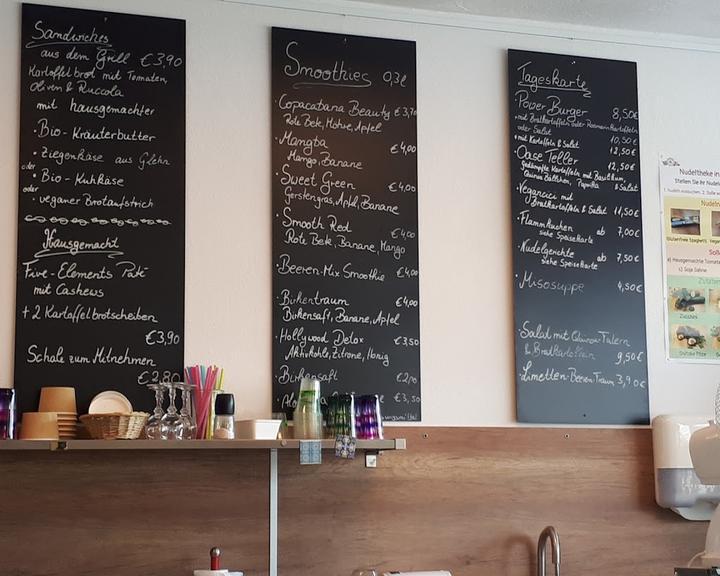 Sandwiches
aus dem Grill €3,90
Kartoffelbrot mit Tomaten,
Oliven & Ruccola
mit hausgemachter
· Bio-Kräuterbutter
· Ziegenkäse aus Glehn
oder
· Bio-Kuhkäse
oder
· veganer Brotaufstrich
Hausgemacht
Five-Elements Paté
mit Cashews
+ 2 Kartoffelbrotscheiben
€3,90
Schale zum Mitnehmen
€2,80
Smoothies 0,3l
· Copacabana Beauty €3,70
Rote Bete, Möhre, Apfel
· Mangba €4,00
Mango, Banane
· Sweet Green €4,00
Gerstengras, Apfel, Banane
· Smooth Red €4,00
Rote Bete, Banane, Mango
· Beeren-Mix Smoothie €4,00
· Birkentraum €4,00
Birkensaft, Banane, Apfel
· Hollywood Detox €3,50
Aktivkohle, Zitrone, Honig
· Birkensaft
€3,50
Tageskarte
· Power Burger 8,50€
· mit Bratkartoffeln oder Rosmarinkartoffeln
oder Salat 10,50€
· mit Kartoffeln & Salat 12,50€
· Oase Teller 12,50€
gedämpfte Kartoffeln mit Basilikum,
Quinoa Bällchen, Paprika & Salat
· Veganicci mit
Bratkartoffeln & Salat 11,50€
· Flammkuchen ab 7,00€
siehe Speisekarte
· Nudelgerichte ab 7,50€
siehe Speisekarte
· Misosuppe 4,50€
· Salat mit Quinoa-Talern
& Bratkartoffeln 9,50€
· Limetten-Beeren-Traum 3,90€
Nudeltheke in
Stellen Sie Ihr
Glutenfreie Spaghetti
a) Hausgemachte
c) Soja Sahne
Zucchini